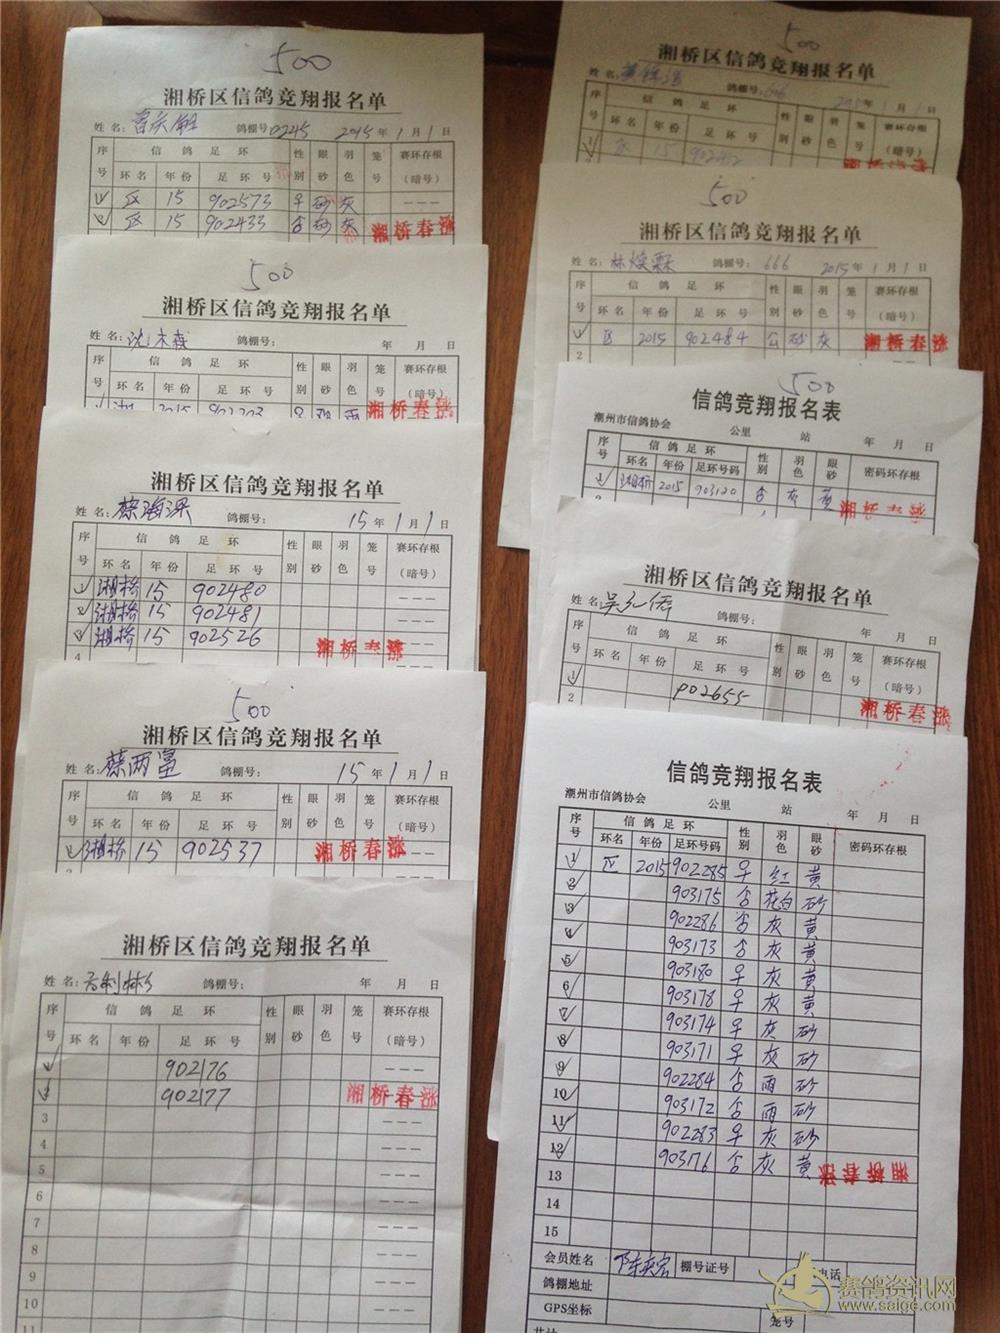 500
湘桥区信鸽竞翔报名单
姓名: 鸽棚号:0245 2015年1月1日
序号 信鸽足环 性别 眼砂 羽色 笼号 赛环存根(暗号)
环名 年份 足环号
1 区 15 902573 早 砂 灰 ---
2 区 15 902433 合 砂 灰 湘桥春涨
500
湘桥区信鸽竞翔报名单
姓名:沈木森 鸽棚号: 年 月 日
序号 信鸽足环 性别 眼砂 羽色 笼号 赛环存根(暗号)
环名 年份 足环号
1 2015 902203 湘桥春涨
湘桥区信鸽竞翔报名单
姓名:蔡海深 鸽棚号: 15年1月1日
序号 信鸽足环 性别 眼砂 羽色 笼号 赛环存根(暗号)
环名 年份 足环号
1 湘桥 15 902480 ---
2 湘桥 15 902481 ---
3 湘桥 15 902526 湘桥春涨
4
500
湘桥区信鸽竞翔报名单
姓名:蔡两富 鸽棚号: 15年1月1日
序号 信鸽足环 性别 眼砂 羽色 笼号 赛环存根(暗号)
环名 年份 足环号
1 湘桥 15 902537 湘桥春涨
湘桥区信鸽竞翔报名单
姓名: 鸽棚号: 年 月 日
序号 信鸽足环 性别 眼砂 羽色 笼号 赛环存根(暗号)
环名 年份 足环号
1 902176 ---
2 902177 湘桥春涨
3 ---
4 ---
5 ---
6 ---
7 ---
8 ---
9 ---
10 ---
11
500
湘桥区信鸽竞翔报名单
姓名: 鸽棚号:606 2015年1月1日
序号 信鸽足环 性别 眼砂 羽色 笼号 赛环存根(暗号)
环名 年份 足环号
1 区 15 902412 湘桥春涨
500
湘桥区信鸽竞翔报名单
姓名: 鸽棚号:666 2015年1月1日
序号 信鸽足环 性别 眼砂 羽色 笼号 赛环存根(暗号)
环名 年份 足环号
1 区 2015 902484 合 砂 灰 湘桥春涨
2
500
信鸽竞翔报名表
潮州市信鸽协会 公里 站 年 月 日
序号 信鸽足环 性别 羽色 眼砂 密码环存根
环名 年份 足环号码
1 湘桥 2015 903120 合 灰 黄 湘桥春涨
湘桥区信鸽竞翔报名单
姓名: 鸽棚号: 年 月 日
序号 信鸽足环 性别 眼砂 羽色 笼号 赛环存根(暗号)
环名 年份 足环号
1 902655
2 湘桥春涨
信鸽竞翔报名表
潮州市信鸽协会 公里 站 年 月 日
序号 信鸽足环 性别 羽色 眼砂 密码环存根
环名 年份 足环号码
1 区 2015 902285 早 红 黄
2 903175 合 花白 砂
3 902286 合 灰 黄
4 903173 合 灰 黄
5 903180 早 灰 黄
6 903178 早 灰 黄
7 903174 早 灰 砂
8 903171 早 灰 砂
9 902284 合 雨 砂
10 903172 合 雨 砂
11 902283 早 灰 砂
12 903176 合 灰 黄 湘桥春涨
13
14
15
会员姓名 棚号证号 电话
鸽棚地址
GPS坐标 笼号
共计
赛鸽资讯网
www.saige.com